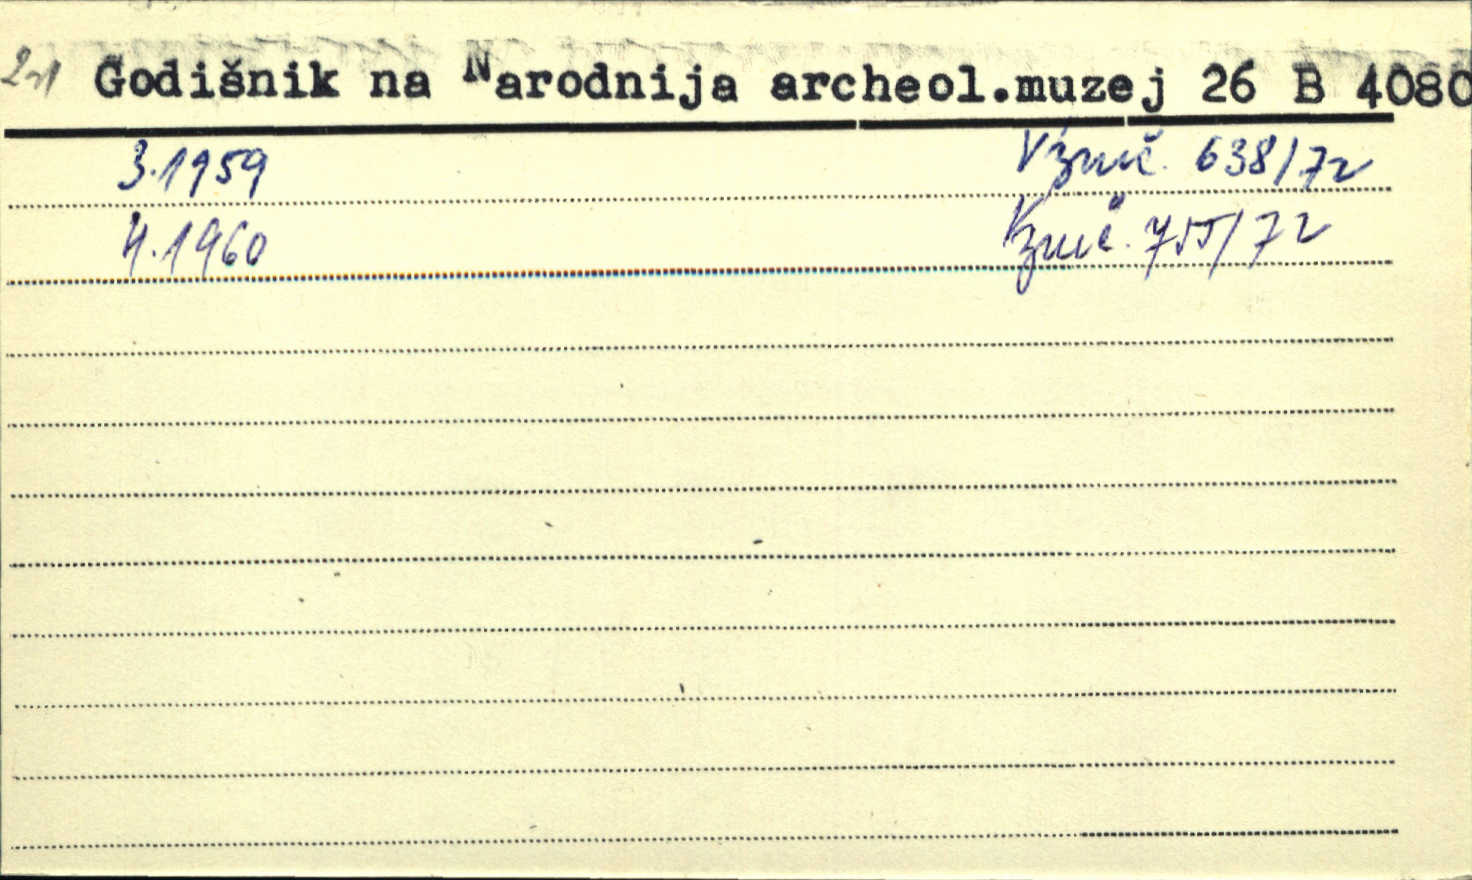 2-1 Godišnik na Narodnija archeol.muzej 26 B 4080
3.1959 638/72
4.1960 755/72